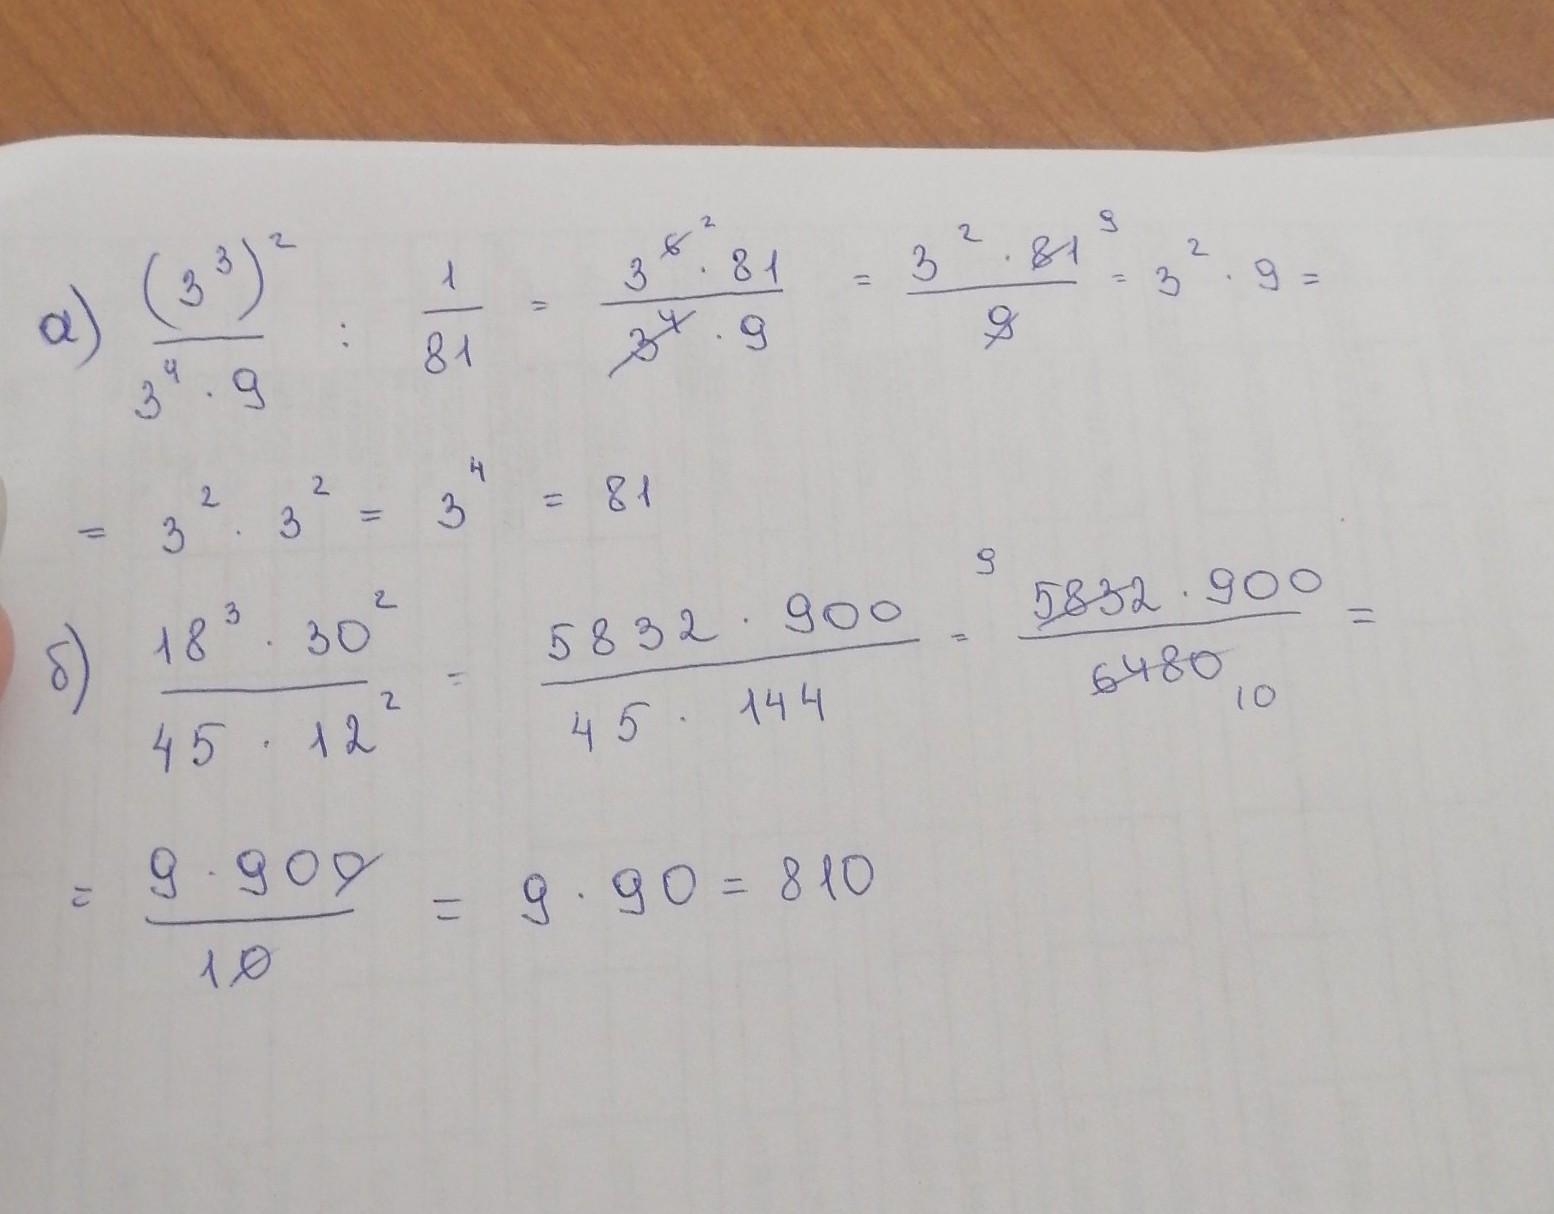 а) (3³)² / 3⁴ · 9 : 1/81 = 3⁶ ² · 81 / 3⁴ · 9 = 3² · 81 ⁹ / 9 = 3² · 9 =
= 3² · 3² = 3⁴ = 81
б) 18³ · 30² / 45 · 12² = 5832 · 900 / 45 · 144 = ⁹ 5832 · 900 / 6480 ₁₀ =
= 9 · 900 / 10 = 9 · 90 = 810